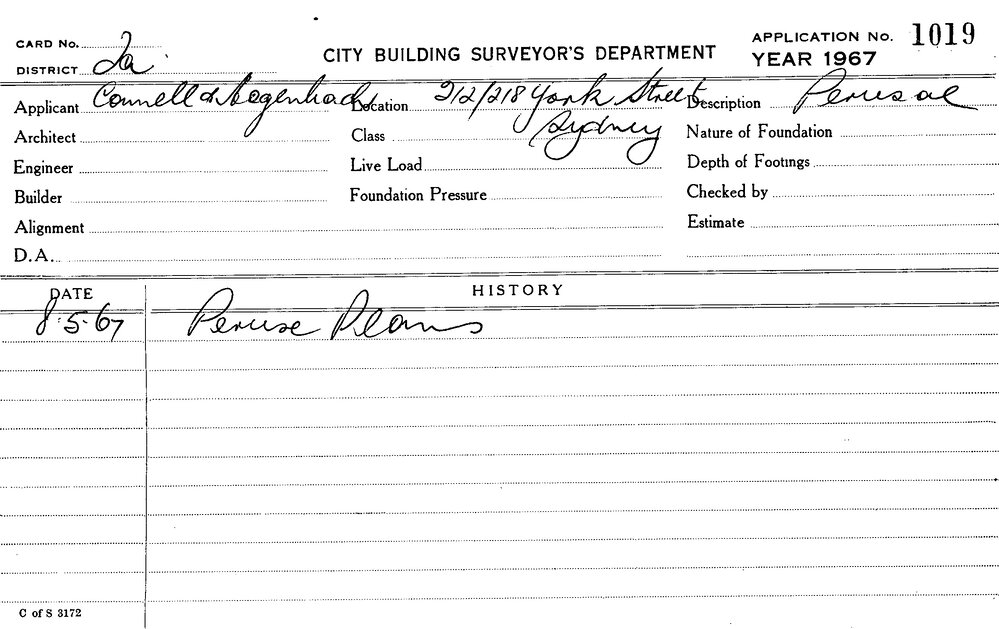 CARD No. APPLICATION No. 1019
CITY BUILDING SURVEYOR'S DEPARTMENT
DISTRICT 2a YEAR 1967
Applicant Connell & Location 212/218 York Street Description Perusal
Architect Class Sydney Nature of Foundation
Engineer Live Load Depth of Footings
Builder Foundation Pressure Checked by
Alignment Estimate
D.A.
DATE HISTORY
8.5.67 Peruse Plans
C of S 3172